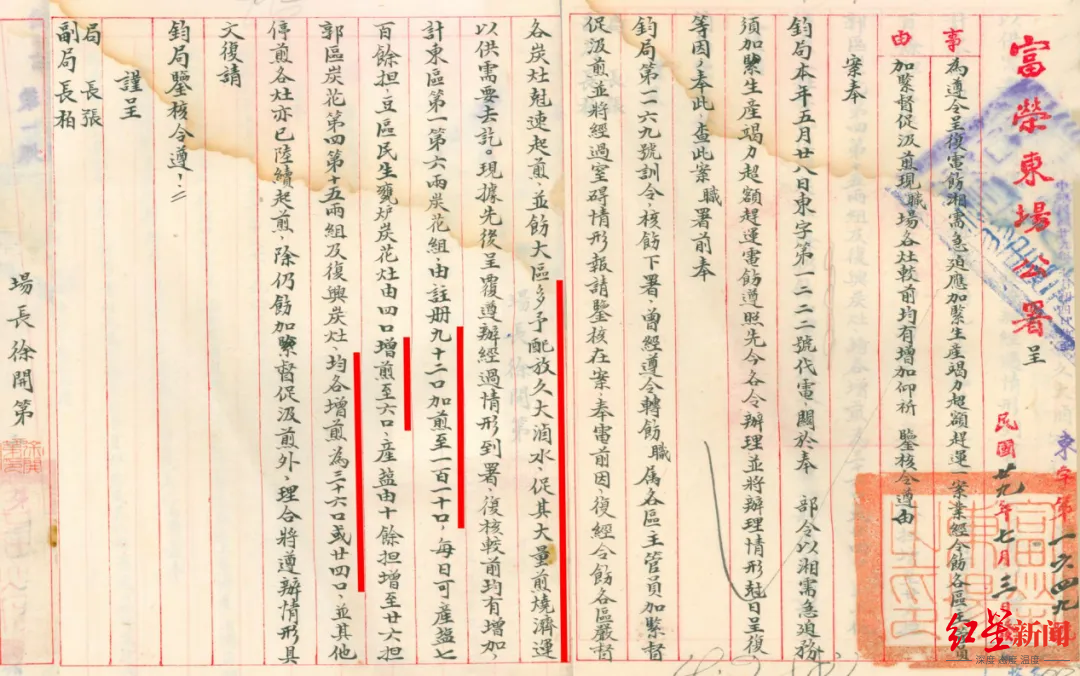 富榮東場公署 呈
東字第一六四九
民國廿九年七月三日
事由
為遵令呈復電飭湘需急迫應加緊生產竭力超額趕運一案業經令飭各區主管員
加緊督促汲煎現職場各灶較前均有增加仰祈 鑒核令遵由
案奉
鈞局本年五月廿八日東字第一二二二號代電、關於奉 部令以湘需急迫務
須加緊生產竭力超額趕運電飭遵照先今各令辦理並將辦理情形尅日呈復、
等因、奉此、查此案職署前奉
鈞局第一一六九號訓令、核飭下署、曾經遵令轉飭職屬各區主管員加緊督
促汲煎並將經過窒碍情形報請鑒核在案、奉電前因、復經令飭各區嚴督
各炭灶尅速起煎、並飭大區多予配放久大滷水、促其大量煎燒濟運
以供需要去訖。現據先後呈覆遵辦經過情形到署、復核較前均有增加、
計東區第一第六兩炭花組、由註册九十二口加煎至一百一十口、每日可產鹽七
百餘担、豆區民生甕炉炭花灶由四口增煎至六口、產鹽由十餘担增至廿六担
郭區炭花第四第十五兩組及復興炭灶、均各增煎為三十六口或廿四口、並其他
停煎各灶亦已陸續起煎、除仍飭加緊督促汲煎外、理合將遵辦情形具
文復請
鈞局鑒核令遵！
謹呈
局長張
副局長柏
場長徐開第
红星新闻
深度 态度 温度